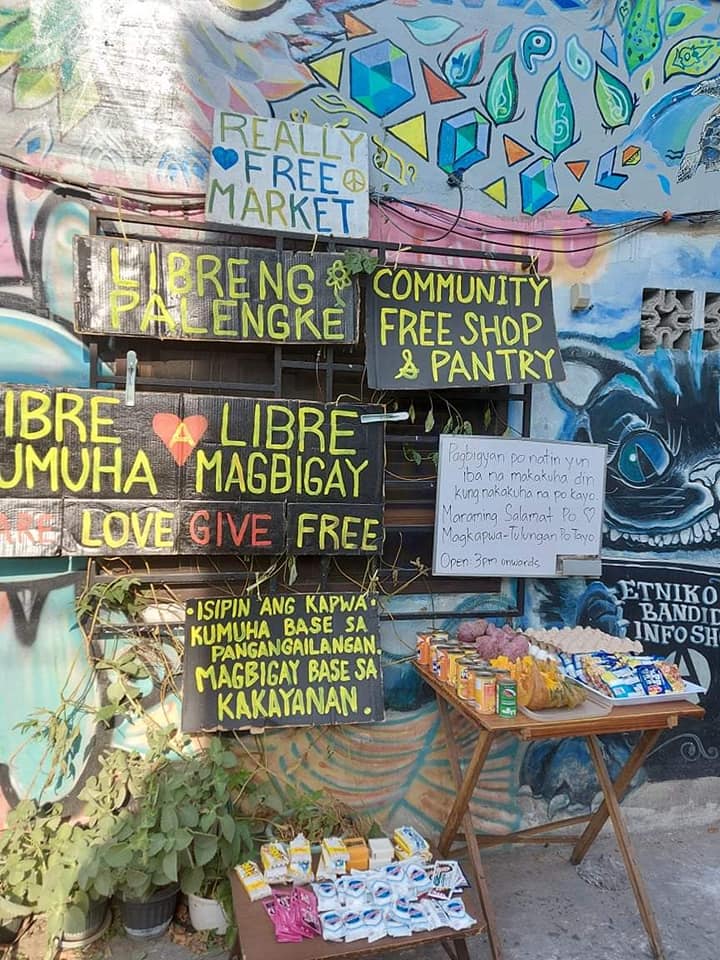 REALLY
FREE
MARKET
LIBRENG
PALENGKE
COMMUNITY
FREE SHOP
& PANTRY
IBRE A LIBRE
UMUHA MAGBIGAY
ARE LOVE GIVE FREE
Pagbigyan po natin yun
iba na makakuha din
kung nakakuha na po kayo.
Maraming Salamat Po ♡
Magkapwa-Tulungan Po Tayo
Open: 3pm onwards
• ISIPIN ANG KAPWA •
KUMUHA BASE SA
PANGANGAILANGAN.
MAGBIGAY BASE SA
KAKAYANAN.
ETNIKO
BANDI
INFOSH
A